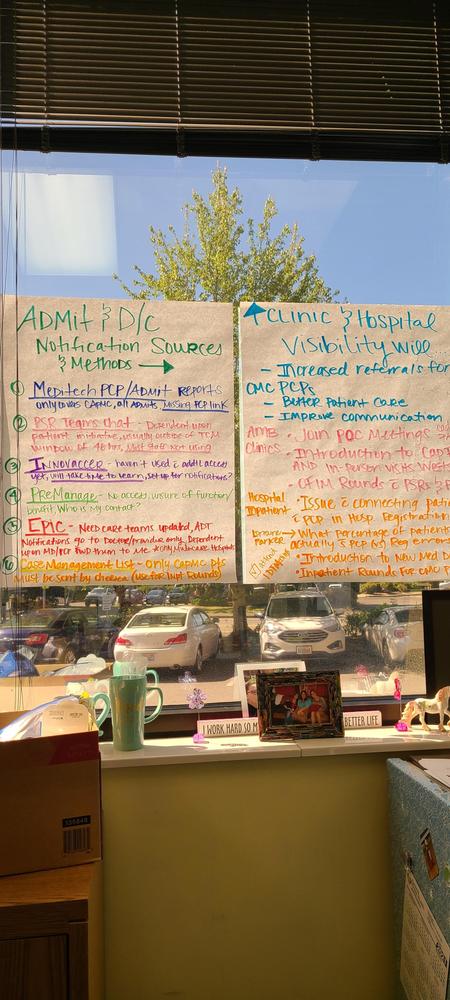 ADMIT & D/C
Notification Sources
& Methods →
① Meditech PCP/Admit Reports
only covers CAPMC, all Admits, Missing PCP link
② PSR Teams Chat - Dependent upon
patient initiative, usually outside of TCM
window of 48 hrs, Most staff not using
③ INNOVACCER - haven't used & add'l access
yet, will take time to learn, set up for notifications?
④ PREManage - No access, unsure of function/
benefit. Who is my contact?
⑤ EPIC - Need care teams updated, ADT
Notifications go to Doctor/Provider only. Dependent
upon MD/PCP FWD them to me
⑥ Case Management List - Only CAPMC Pts
Must be sent by Chelsea (use for Inpt Rounds)
↑ CLINIC & Hospital
Visibility will...
- Increased referrals for
CMC PCPs
- Better Patient Care
- Improve communication
AMB Clinics
• Join POC Meetings
• Introduction to
AND in-person visits
• CFIM Rounds & PSRs &
Hospital Inpatient
• Issue & connecting
& PCP in Hosp Registration
→ What percentage of
actually & PCP
• Introduction to New Med
• Inpatient Rounds For CMC
I WORK HARD SO M
BETTER LIFE